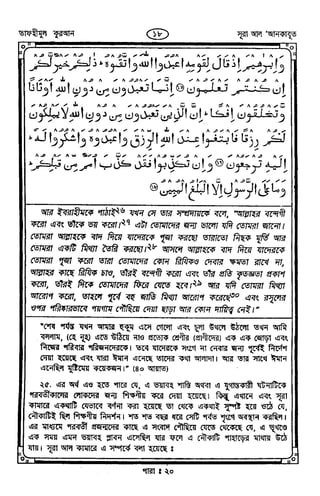 তাফহীমুল কুরআন
১৮
সূরা আল 'আনকাবূত
وَإِبْرٰهِيْمَ إِذْ قَالَ لِقَوْمِهِ اعْبُدُوا اللّٰهَ وَاتَّقُوْهُ ۚ ذٰلِكُمْ خَيْرٌ لَّكُمْ
إِنْ كُنْتُمْ تَعْلَمُوْنَ ۝ إِنَّمَا تَعْبُدُوْنَ مِنْ دُوْنِ اللّٰهِ أَوْثَانًا
وَّتَخْلُقُوْنَ إِفْكًا ۚ إِنَّ الَّذِيْنَ تَعْبُدُوْنَ مِنْ دُوْنِ اللّٰهِ لَا يَمْلِكُوْنَ
لَكُمْ رِزْقًا فَابْتَغُوْا عِنْدَ اللّٰهِ الرِّزْقَ وَاعْبُدُوْهُ وَاشْكُرُوْا لَهٗ ۚ
إِلَيْهِ تُرْجَعُوْنَ ۝ وَإِنْ تُكَذِّبُوْا فَقَدْ كَذَّبَ أُمَمٌ مِّنْ قَبْلِكُمْ ۚ
وَمَا عَلَى الرَّسُوْلِ إِلَّا الْبَلٰغُ الْمُبِيْنُ ۝
আর ইবরাহীমকে পাঠাই২৬ যখন সে তার সম্প্রদায়কে বলে, "আল্লাহর বন্দেগী
করো এবং তাঁকে ভয় করো।২৭ এটা তোমাদের জন্য ভালো যদি তোমরা জানো।
তোমরা আল্লাহকে বাদ দিয়ে যাদেরকে পূজা করছো তারাতো নিছক মূর্তি আর
তোমরা একটি মিথ্যা তৈরি করছো।২৮ আসলে আল্লাহকে বাদ দিয়ে যাদেরকে
তোমরা পূজা করো তারা তোমাদের কোন রিযিকও দেবার ক্ষমতা রাখে না,
আল্লাহর কাছে রিযিক চাও, তাঁরই বন্দেগী করো এবং তাঁর প্রতি কৃতজ্ঞতা প্রকাশ
করো, তাঁরই দিকে তোমাদের ফিরে যেতে হবে।২৯ আর যদি তোমরা মিথ্যা
আরোপ করো, তাহলে পূর্বে বহু জাতি মিথ্যা আরোপ করেছে৩০ এবং রসূলের
ওপর পরিষ্কারভাবে পয়গাম পৌঁছিয়ে দেয়া ছাড়া আর কোন দায়িত্ব নেই।"
"শেষ পর্যন্ত যখন আমার হুকুম এসে গেলো এবং চুলা উথলে উঠলো তখন আমি
বললাম, (হে নূহ) এতে উঠিয়ে নাও প্রত্যেক শ্রেণীর (প্রাণীদের) এক এক জোড়া এবং
নিজের পরিবার পরিজনদেরকে। তবে যাদেরকে সংগে না নেবার জন্য পূর্বেই নির্দেশ
দেয়া হয়েছে এবং যারা ঈমান এনেছে তাদের কথা আলাদা। আর তার সাথে ঈমান
এনেছিল মুষ্টিমেয় কয়েকজন।" (৪০ আয়াত)
২৫. এর অর্থ এও হতে পারে যে, এ ভয়াবহ শাস্তি অথবা এ যুগান্তকারী ঘটনাটিকে
পরবর্তীকালের লোকদের জন্য শিক্ষণীয় করে দেয়া হয়েছে। কিন্তু এখানে এবং সূরা
কামারে একথাটি যেভাবে বর্ণনা করা হয়েছে তা থেকে একথাই সুস্পষ্ট হয়ে ওঠে যে,
নৌকাটিই ছিল শিক্ষণীয় নিদর্শন। শত শত বছর ধরে সেটি পর্বত শৃংগে অবস্থান করছিল।
এর মাধ্যমে পরবর্তী প্রজন্মদের কাছে এ সংবাদ পৌঁছিয়ে যেতে থেকেছে যে, এ ভূখণ্ডে
এক সময় এমন ভয়াবহ প্লাবন এসেছিল যার ফলে এ নৌকাটি পাহাড়ের মাথায় উঠে
যায়। সূরা আল কামারে এ সম্পর্কে বলা হয়েছে :
পারা : ২০